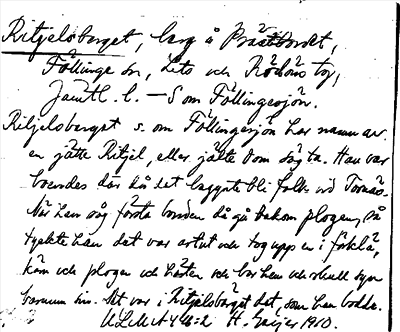 Ritjelsberget, berg å Prästbordet,
Föllinge sn, Lits och Rödöns tg,
Jämtl. l. — S om Föllingesjön.
Ritjelsberget s. om Föllingesjön har namn av
en jätte Ritjel, eller jätte som sägta. Han var
boendes där då det begynte bli folk vid Tornäs.
När han såg första bonden då gå bakom plogen, så
tyckte han det var artut och tog upp en i fökla,
karn och plogen och hästen och bar hem och skull syn
barnum sin. Att var i Ritjelsberget det, som han bodde.
ULMA 44 H. Geijer 1910.